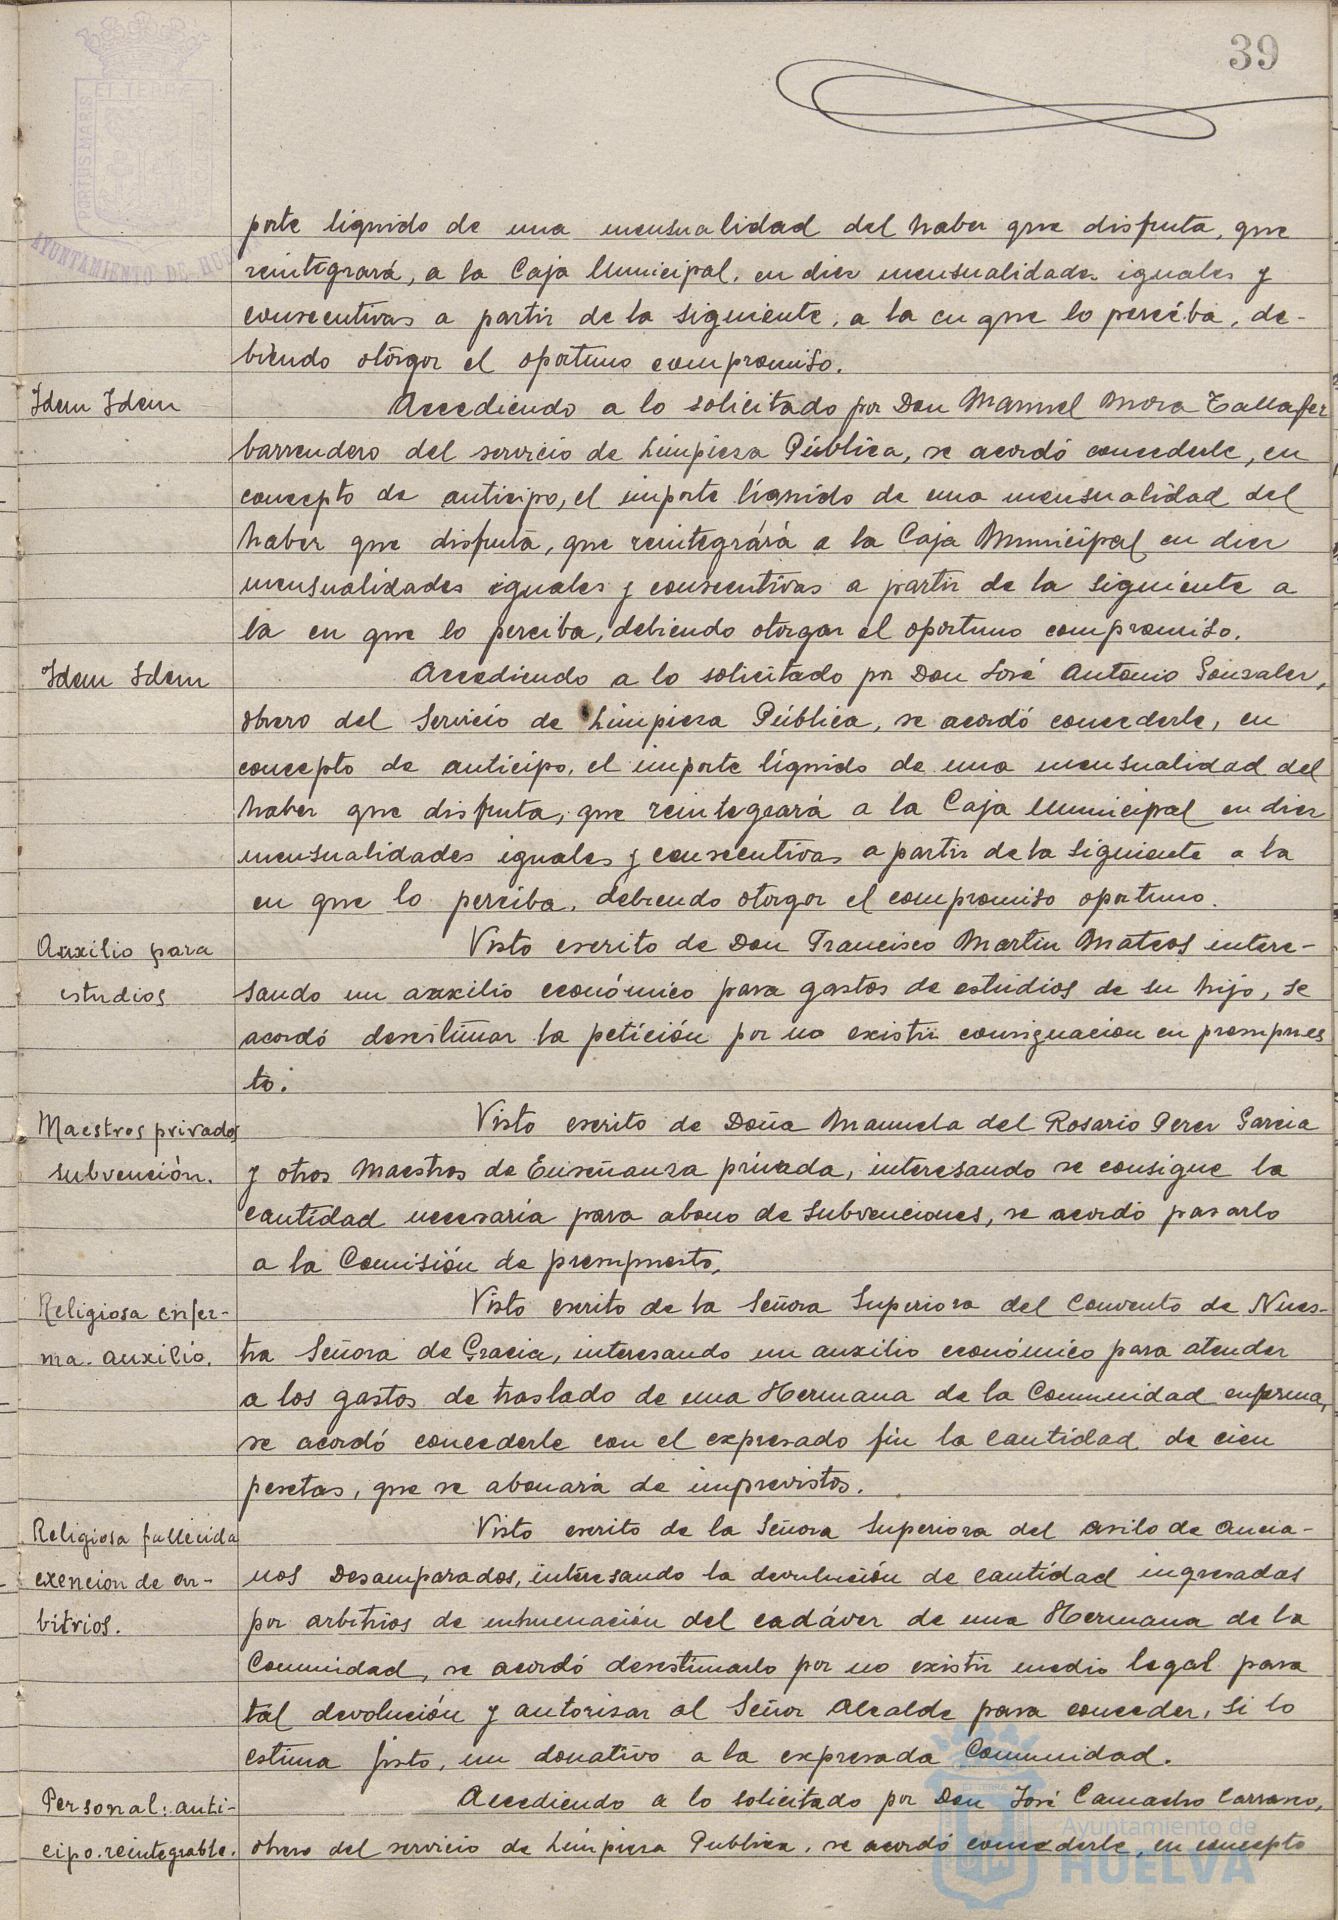 39
PORTUS MARIS
ET TERRÆ
CUSTODIA
AYUNTAMIENTO DE HUELVA
porte líquido de una mensualidad del haber que disfruta, que
reintegrará, a la Caja Municipal, en diez mensualidades iguales y
consecutivas a partir de la siguiente, a la en que lo perciba, de-
biendo otorgar el oportuno compromiso.
Idem Idem
Accediendo a lo solicitado por Don Manuel Mora Tallafer
barrendero del servicio de Limpieza Pública, se acordó concederle, en
concepto de anticipo, el importe líquido de una mensualidad del
haber que disfruta, que reintegrará a la Caja Municipal en diez
mensualidades iguales y consecutivas a partir de la siguiente a
la en que lo perciba, debiendo otorgar el oportuno compromiso.
Idem Idem
Accediendo a lo solicitado por Don José Antonio Gonzalez,
obrero del Servicio de Limpieza Pública, se acordó concederle, en
concepto de anticipo, el importe líquido de una mensualidad del
haber que disfruta, que reintegrará a la Caja Municipal en diez
mensualidades iguales y consecutivas a partir de la siguiente a la
en que lo perciba, debiendo otorgar el compromiso oportuno.
Auxilio para
estudios
Visto escrito de Don Francisco Martin Mateos intere-
sando un auxilio económico para gastos de estudios de su hijo, se
acordó desestimar la petición por no existir consignacion en presupues
to.
Maestros privados
subvención.
Visto escrito de Doña Manuela del Rosario Perez Garcia
y otros Maestros de Enseñanza privada, interesando se consigne la
cantidad necesaria para abono de Subvenciones, se acordó pasarlo
a la Comisión de presupuesto.
Religiosa enfer-
ma. auxilio.
Visto escrito de la Señora Superiora del Convento de Nues-
tra Señora de Gracia, interesando un auxilio económico para atender
a los gastos de traslado de una Hermana de la Comunidad enferma,
se acordó concederle con el expresado fin la cantidad de cien
pesetas, que se abonará de imprevistos.
Religiosa fallecida
exencion de ar-
bitrios.
Visto escrito de la Señora Superiora del asilo de Ancia-
nos Desamparados, interesando la devolución de cantidad ingresadas
por arbitrios de inhumación del cadáver de una Hermana de la
Comunidad, se acordó desestimarlo por no existir medio legal para
tal devolución y autorizar al Señor Alcalde para conceder, si lo
estima justo, un donativo a la expresada Comunidad.
Personal: anti-
cipo. reintegrable.
Accediendo a lo solicitado por Don José Camacho Carrasco,
obrero del servicio de Limpieza Publica, se acordó concederle, en concepto
Ayuntamiento de
HUELVA